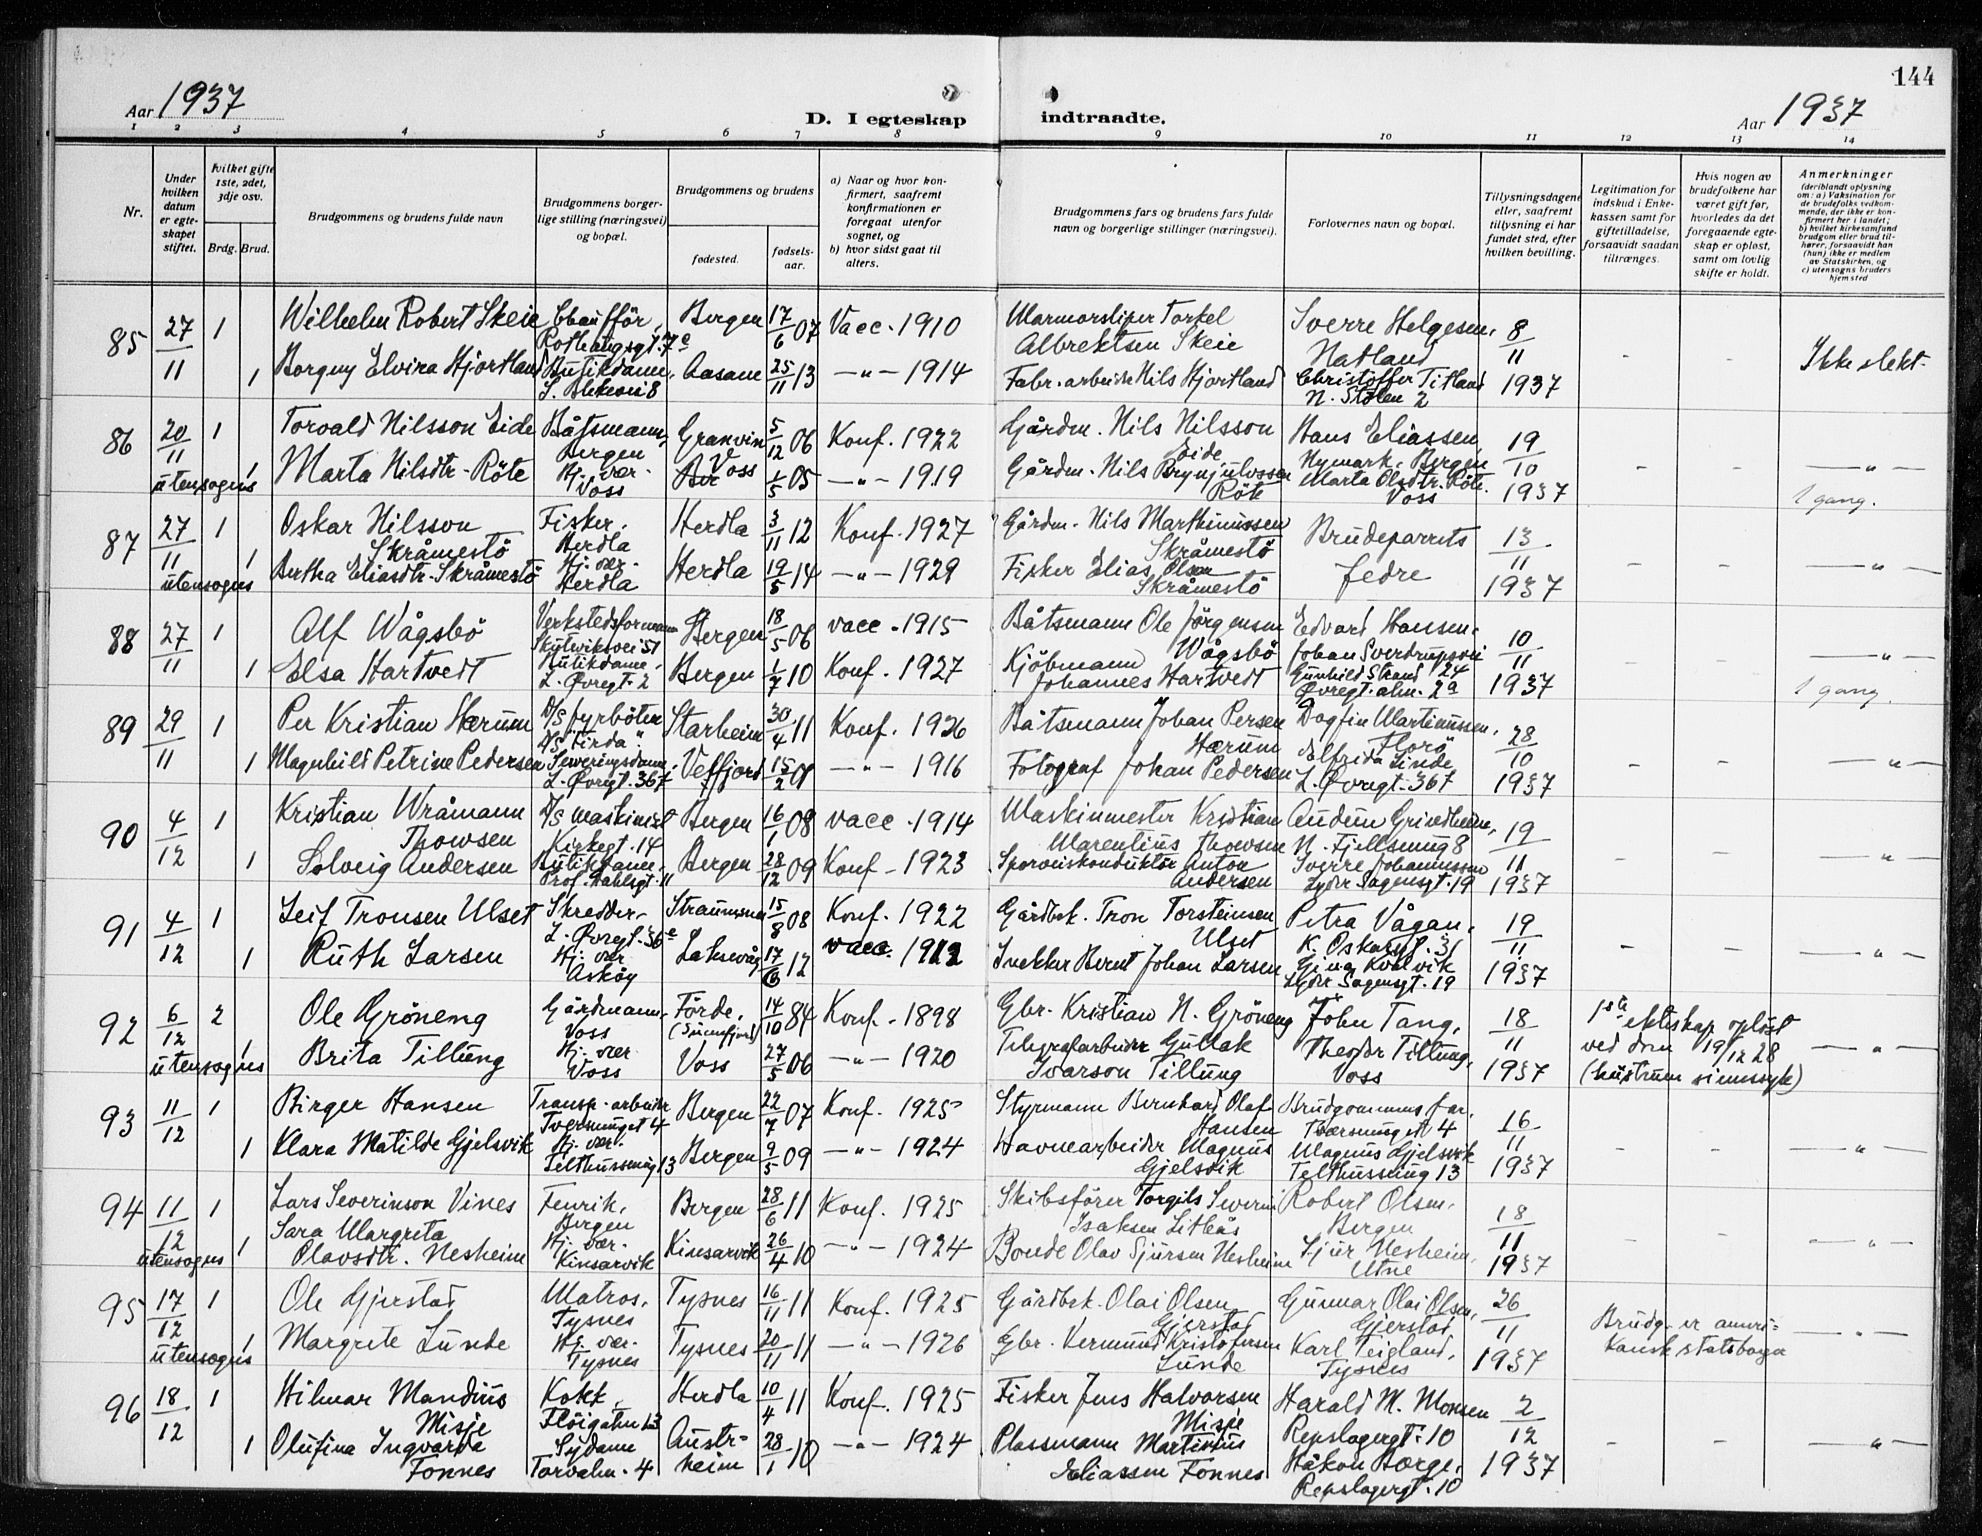 144
Aar 1937
D. I egteskap indtraadte.
Aar 1937
1 2 3 4 5 6 7 8 9 10 11 12 13 14
Nr.
Under hvilken datum er egteskapet stiftet.
Hvilket gifte 1ste, 2det, 3dje osv.
Brdg. Brud.
Brudgommens og brudens fulde navn
Brudgommens borgerlige stilling (næringsvei) og bopæl.
Brudgommens og brudens
fødested.
fødselsaar.
a) Naar og hvor konfirmert, saafremt konfirmationen er foregaat utenfor sognet, og
b) hvor sidst gaat til alters.
Brudgommens fars og brudens fars fulde navn og borgerlige stillinger (næringsvei).
Forlovernes navn og bopæl.
Tillysningsdagene eller, saafremt tillysning ei har fundet sted, efter hvilken bevilling.
Legitimation for indskud i Enkekassen samt for giftetilladelse, forsaavidt saadan tiltrænges.
Hvis nogen av brudefolkene har været gift før, hvorledes da det foregaaende egteskap er opløst, samt om lovlig skifte er holdt.
Anmerkninger
(deriblandt oplysning om: a) Vaksination for de brudefolks vedkommende, der ikke er konfirmert her i landet; b) hvilket kirkesamfund brudgom eller brud tilhører, forsaavidt han (hun) ikke er medlem av Statskirken, og c) utensogns bruders hjemsted
85 27/11 1 Wilhelm Robert Skeie Chaufför, Rothaugsgt. 7e Bergen 17/6 07 Vacc. 1910 Marmorsliper Torkel Albrektsen Skeie Sverre Helgesen, Natland 8/11 1937 - - Ikke slekt.
1 Borgny Elvira Hjortland Butikdame, L. Blekevei 8 Aasane 25/11 13 -"- 1914 Fabr. arbeider Nils Hjortland Christoffer Titland N. Stølen 2
86 20/11 utensogns 1 Torvald Nilsson Eide Båtsmann, Bergen Granvin 5/12 06 Konf. 1922 Gårdm. Nils Nilsson Eide Hans Eliassen, Nymark, Bergen 19/10 1937 - - -"-
1 Marta Nilsdtr. Röte Hj. vær. Voss Voss 1/5 05 -"- 1919 Gårdm. Nils Brynjulvssen Röte Marta Olsdtr. Röte, Voss 1 gang.
87 27/11 utensogns 1 Oskar Nilsson Skråmestö Fisker. Herdla Herdla 3/11 12 Konf. 1927 Gårdm. Nils Marthinussen Skråmestö Brudeparrets fedre 13/11 1937 - - -"-
1 Bertha Eliasdtr. Skråmestö Hj. vær. Herdla Herdla 19/5 14 -"- 1929 Fisker Elias Olsen Skråmestö
88 27/11 1 Alf Wågsbö Verkstedsformann Skuteviksvei 51 Bergen 18/5 06 vacc. 1915 Båtsmann Ole Jörgensen Wågsbö Edvard Hansen, Johan Sverdrupsvei 24 10/11 1937 - - -"-
1 Elsa Hartvedt Butikdame, L. Øvregt. 2 Bergen 1/7 10 Konf. 1927 Kjöbmann Johannes Hartvedt Gunhild Strand Øvregt. alm. 2a 1 gang.
89 29/11 1 Per Kristian Hærum D/S fyrböter D/S "Firda". Starheim 30/4 11 Konf. 1926 Båtsmann Johan Persen Hærum Dagfin Martinussen, Florö 28/10 1937 - - -"-
1 Magnhild Petrine Pedersen Serveringsdame, L. Øvregt. 36 Vefjord 15/2 01 -"- 1916 Fotograf Johan Pedersen Elfrida Linde L. Øvregt. 36
90 4/12 1 Kristian Wråmann Thowsen D/S maskinist Kirkegt. 14 Bergen 16/1 08 vacc. 1914 Maskinmester Kristian Marentius Thowsen Audun Grindheim, N. Fjellsmug 8 19/11 1937 - - -"-
1 Solveig Andersen Butikdame, Prof. Dahlsgt. 11 Bergen 28/12 09 Konf. 1923 Sporveiskonduktör Anton Andersen Sverre Johannessen Lyder Sagensgt. 19
91 4/12 1 Leif Tronsen Ulset Skredder, L. Øvregt. 36e Straumsnes 15/8 08 Konf. 1922 Gårdbek. Tron Torsteinsen Ulset Petra Vågan, K. Oskarsgt. 31 19/11 1937 - - -"-
1 Ruth Larsen Hj. vær Askøy Laksevåg 17/6 12 vacc. 1912 Snekker Bernt Johan Larsen Gina Kvalvik Lyder Sagensgt. 19
92 6/12 utensogns 2 Ole Gröneng Gårdmann, Voss Förde, (Sunnfjord) 14/10 84 Konf. 1898 Gbr. Kristian N. Gröneng John Tang, 18/11 1937 1ste ekteskap oplöst ved dom 19/12 28 (hustruen sinnssyk) -"-
1 Brita Tillung Hj. vær Voss Voss 27/5 06 -"- 1920 Telegrafarbeider Gullak Ivarson Tillung Theodor Tillung, Voss
93 11/12 1 Birger Hansen Transp. arbeider Tversmuget 4 Bergen 22/7 07 Konf. 1925 Styrmann Bernhard Olaf Hansen Brudgommens far. Tversmuget 4 16/11 1937 - - -"-
1 Klara Matilde Gjelsvik Hj. vær. Telthussmug 13 Bergen 9/5 09 -"- 1924 Havnearbeider Magnus Gjelsvik Magnus Gjelsvik Telthussmug 13
94 11/12 utensogns 1 Lars Severinson Vines Fenrik, Bergen Bergen 28/6 11 Konf. 1925 Skibsförer Torgils Severin Isaksen Litleås Robert Olsen, Bergen 18/11 1937 - - -"-
1 Sara Margreta Olavsdtr. Nesheim Hj. vær. Kinsarvik Kinsarvik 26/4 10 -"- 1924 Bonde Olav Sjursen Nesheim Sjur Nesheim, Utne
95 17/12 utensogns 1 Ole Gjerstad Matros, Tysnes Tysnes 16/11 11 Konf. 1925 Gårdbek. Olai Olsen Gjerstad Gunnar Olai Olsen, Gjerstad 26/11 1937 Brudg. er amerikansk statsborger -"-
1 Margrete Lunde Hj. vær. Tysnes Tysnes 20/11 11 -"- 1926 Gbr. Vermund Kristofersen Lunde Karl Teigland, Tysnes
96 18/12 1 Hilmar Mandius Misje Kokk, Fløigaten 13 Herdla 10/4 11 Konf. 1925 Fisker Jens Halvorsen Misje Harald M. Monsen Repslagergt. 10 2/12 1937 - - -"-
1 Olufina Ingvarda Fonnes Sydame Torvalm. 4 Austrheim 28/1 10 -"- 1924 Plassmann Martinius Eliassen Fonnes Håkon Børge, Repslagergt. 10